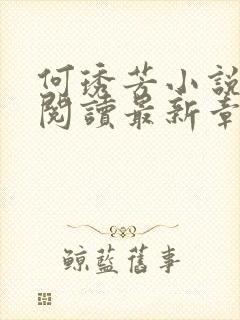 何琇芳小說
閱讀最新章
鯨藍舊事